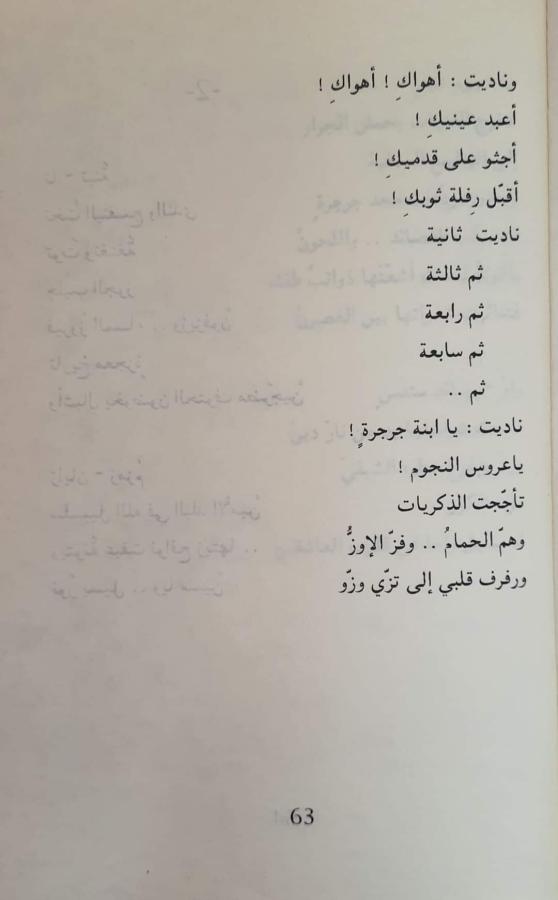 وناديت : أهواكِ ! أهواكِ !
أعبد عينيكِ !
أجثو على قدميكِ !
أقبّل رِفلة ثوبكِ !
ناديت ثانية
ثم ثالثة
ثم رابعة
ثم سابعة
ثم ..
ناديت : يا ابنة جرجرةٍ !
ياعروس النجوم !
تأجّجت الذكريات
وهمّ الحمامُ .. وفزّ الإوزُّ
ورفرف قلبي إلى تزّي وزّو
63